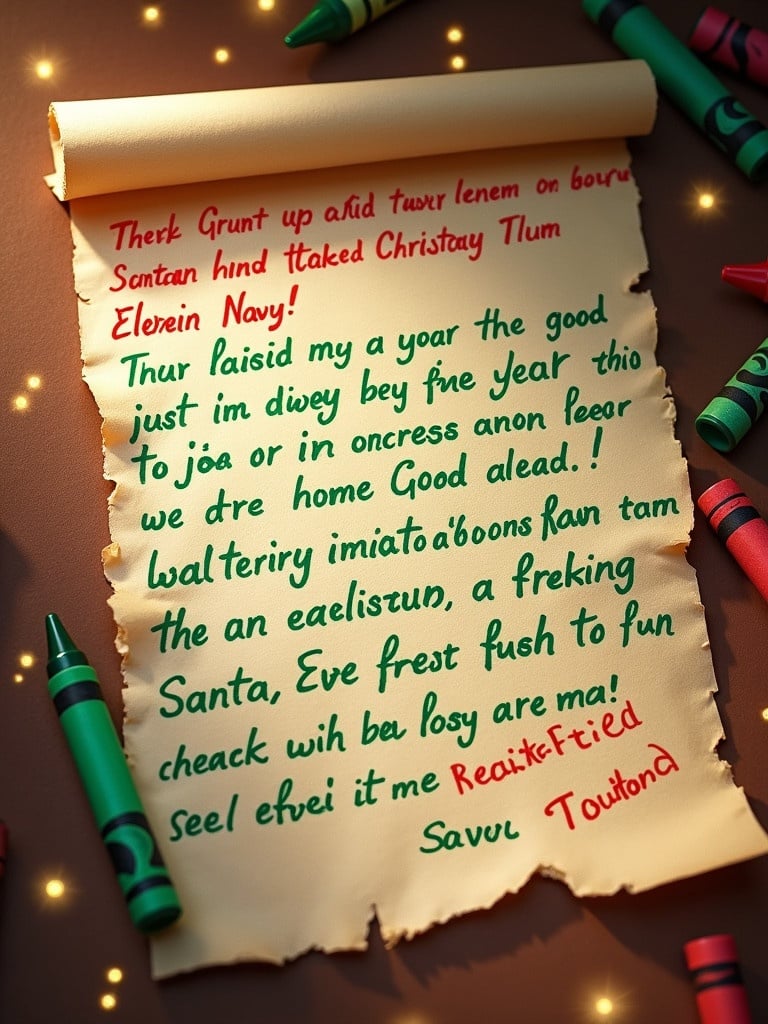 Therk Grunt up afid tuwr lenem on bowru
Scntan hind ttaked Christoay Tlum
Elerein Navy!
Thur laisid my a yoar the good
just im diwey bey fne year thio
to joa or in oncress anon feeor
we dtre home Good alead.!
walteriry imiato a'boons Ran tam
the an eaelistun, a freking
Santa, Eve frest fush to fun
cheack wih bea losy are ma!
seel efvei it me Reaitc-Fried
Savuc Touitond